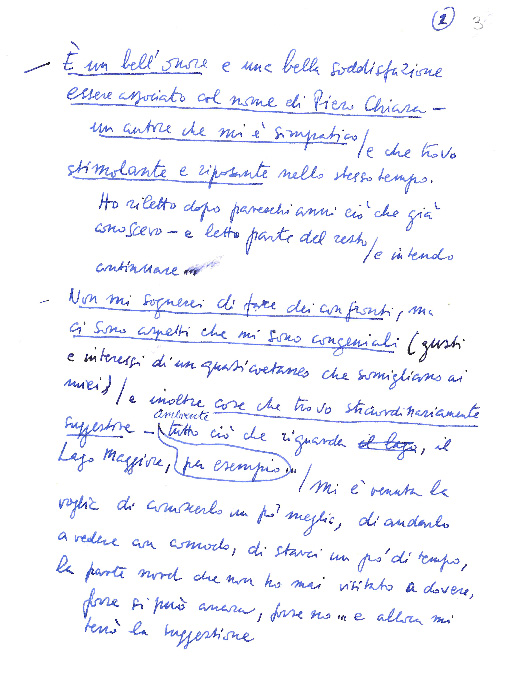 2 3
È un bell'onore e una bella soddisfazione
essere associato col nome di Piero Chiara –
un autore che mi è simpatico / e che trovo
stimolante e riposante nello stesso tempo.
Ho riletto dopo parecchi anni ciò che già
conoscevo – e letto parte del resto / e intendo
continuare ...
– Non mi sognerei di fare dei confronti, ma
ci sono aspetti che mi sono congeniali (gusti
e interessi di un quasi coetaneo che somigliano ai
miei) / e inoltre cose che trovo straordinariamente
suggestive – tutto ciò che riguarda el lago, il
ambiente
Lago Maggiore, per esempio... / mi è venuta la
voglia di conoscerlo un pò meglio, di andarlo
a vedere con comodo, di starci un pò di tempo,
la parte nord che non ho mai visitato a dovere,
forse si può ancora, forse no... e allora mi
terrò la suggestione